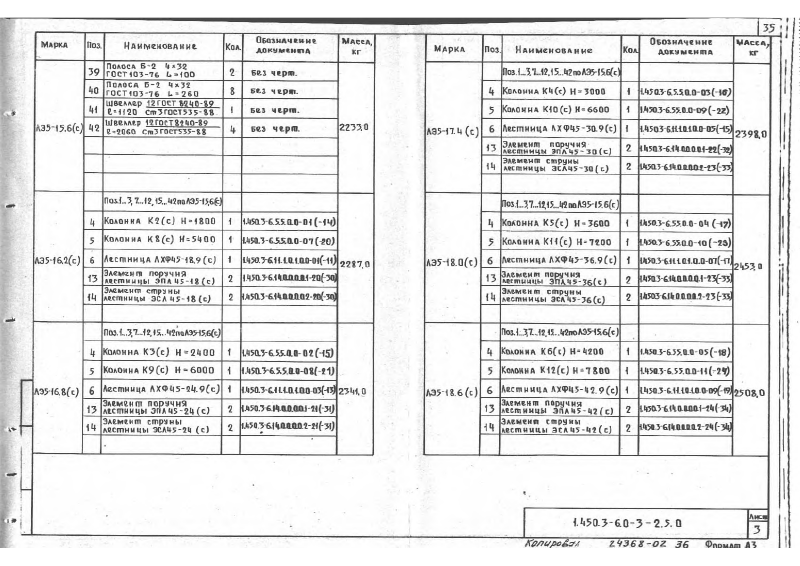 35
Марка Поз. Наименование Кол. Обозначение документа Масса, кг
39 Полоса Б-2 4×32 ГОСТ 103-76 L=100 2 Без черт.
40 Полоса Б-2 4×32 ГОСТ 103-76 L=260 8 Без черт.
41 Швеллер 12 ГОСТ 8240-89 ℓ=1120 Ст3 ГОСТ 535-88 1 Без черт.
ЛЭ5-15.6(с) 42 Швеллер 12 ГОСТ 8240-89 ℓ=2060 Ст3 ГОСТ 535-88 4 Без черт. 2233.0
Поз.1...3,7...12,15...42 по ЛЭ5-15.6(с)
4 Колонна К2(с) Н=1800 1 1.450.3-6.5.5.0.0-01(-14)
5 Колонна К8(с) Н=5400 1 1.450.3-6.5.5.0.0-07(-20)
ЛЭ5-16.2(с) 6 Лестница ЛХФ45-18.9(с) 1 1.450.3-6.1.1.0.1.0.0-01(-11) 2287.0
13 Элемент поручня лестницы ЭПЛ45-18(с) 2 1.450.3-6.14.0.0.0.0.1-20(-30)
14 Элемент струны лестницы ЭСЛ45-18(с) 2 1.450.3-6.14.0.0.0.0.2-20(-30)
Поз.1...3,7...12,15...42 по ЛЭ5-15.6(с)
4 Колонна К3(с) Н=2400 1 1.450.3-6.5.5.0.0-02(-15)
5 Колонна К9(с) Н=6000 1 1.450.3-6.5.5.0.0-08(-21)
ЛЭ5-16.8(с) 6 Лестница ЛХФ45-24.9(с) 1 1.450.3-6.1.1.0.1.0.0-03(-13) 2341.0
13 Элемент поручня лестницы ЭПЛ45-24(с) 2 1.450.3-6.14.0.0.0.0.1-21(-31)
14 Элемент струны лестницы ЭСЛ45-24(с) 2 1.450.3-6.14.0.0.0.0.2-21(-31)
Марка Поз. Наименование Кол. Обозначение документа Масса, кг
Поз.1...3,7...12,15...42 по ЛЭ5-15.6(с)
4 Колонна К4(с) Н=3000 1 1.450.3-6.5.5.0.0-03(-16)
5 Колонна К10(с) Н=6600 1 1.450.3-6.5.5.0.0-09(-22)
ЛЭ5-17.4(с) 6 Лестница ЛХФ45-30.9(с) 1 1.450.3-6.1.1.0.1.0.0-05(-15) 2398.0
13 Элемент поручня лестницы ЭПЛ45-30(с) 2 1.450.3-6.14.0.0.0.0.1-22(-32)
14 Элемент струны лестницы ЭСЛ45-30(с) 2 1.450.3-6.14.0.0.0.0.2-23(-33)
Поз.1...3,7...12,15...42 по ЛЭ5-15.6(с)
4 Колонна К5(с) Н=3600 1 1.450.3-6.5.5.0.0-04(-17)
5 Колонна К11(с) Н=7200 1 1.450.3-6.5.5.0.0-10(-23)
ЛЭ5-18.0(с) 6 Лестница ЛХФ45-36.9(с) 1 1.450.3-6.1.1.0.1.0.0-07(-17) 2453.0
13 Элемент поручня лестницы ЭПЛ45-36(с) 2 1.450.3-6.14.0.0.0.0.1-23(-33)
14 Элемент струны лестницы ЭСЛ45-36(с) 2 1.450.3-6.14.0.0.0.0.2-23(-33)
Поз.1...3,7...12,15...42 по ЛЭ5-15.6(с)
4 Колонна К6(с) Н=4200 1 1.450.3-6.5.5.0.0-05(-18)
5 Колонна К12(с) Н=7800 1 1.450.3-6.5.5.0.0-11(-24)
ЛЭ5-18.6(с) 6 Лестница ЛХФ45-42.9(с) 1 1.450.3-6.1.1.0.1.0.0-09(-19) 2508.0
13 Элемент поручня лестницы ЭПЛ45-42(с) 2 1.450.3-6.14.0.0.0.0.1-24(-34)
14 Элемент струны лестницы ЭСЛ45-42(с) 2 1.450.3-6.14.0.0.0.0.2-24(-34)
1.450.3-6.0-3-2.5.0
Лист 3
Копировал 24368-02 36 Формат А3